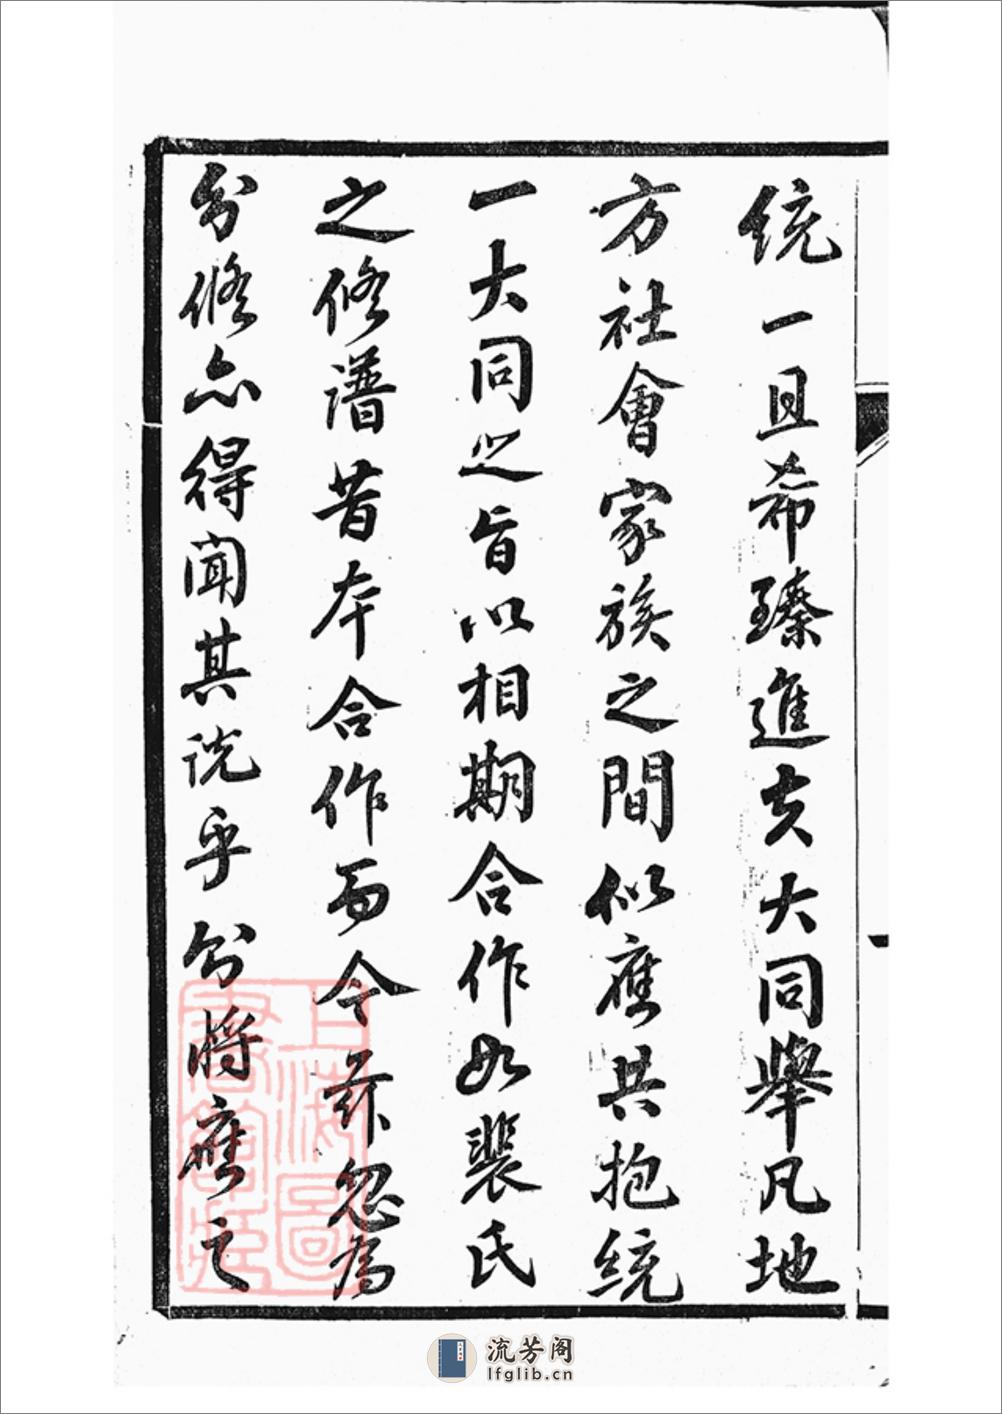 统一且希臻進去大同舉凡地
方社會家族之間似應共抱統
一大同之旨以相期合作如裴氏
之修譜昔本合作而今兹忽為
分修亦得闻其说乎分將應之
上海圖書館藏
流芳阁
lfglib.cn